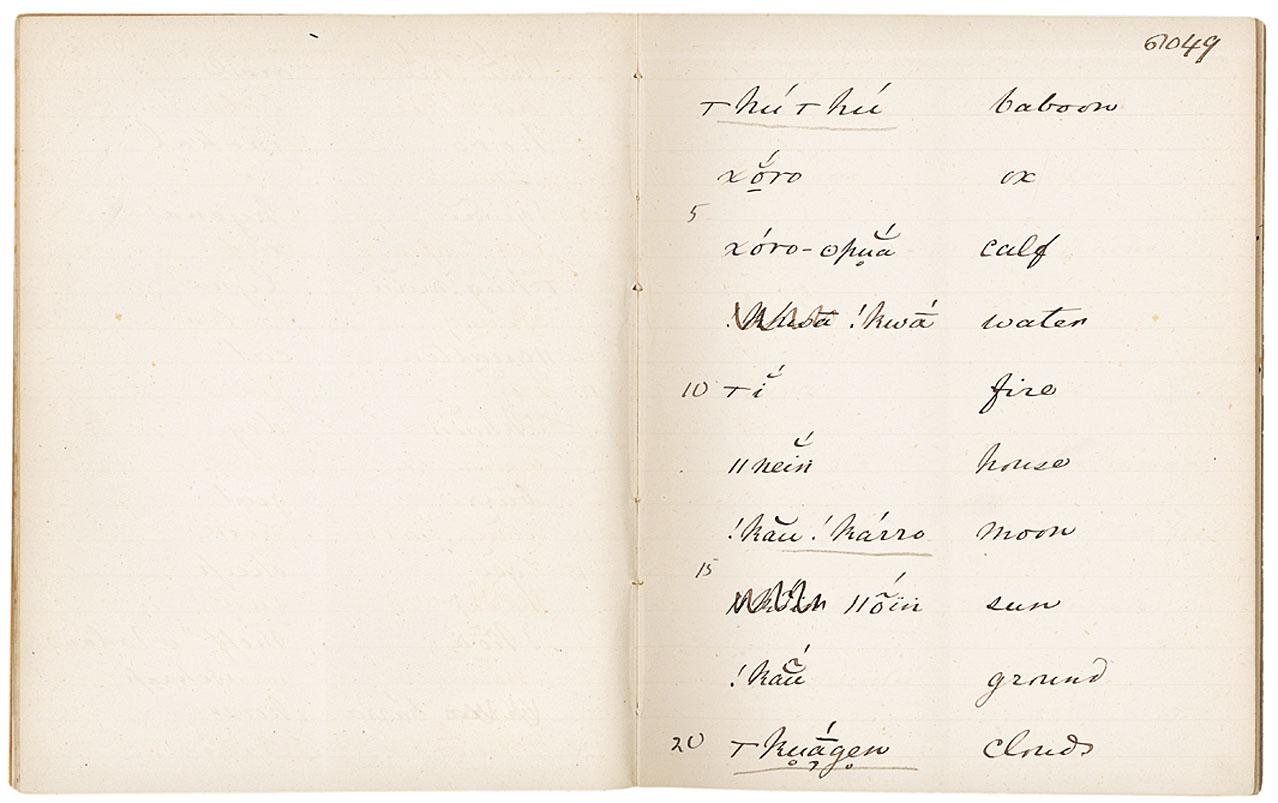 6049
⊤hú⊤hú baboon
xǒ́ro ox
5
xóro-ʘpu̥ǎ́ calf
!kwā́ water
10 ⊤ǐ́ fire
ǁneiň́ house
!kǎu!kárro moon
15
ǁṍiṅ sun
!kǎ́ũ ground
20 ⊤ku̥ā́gen clouds